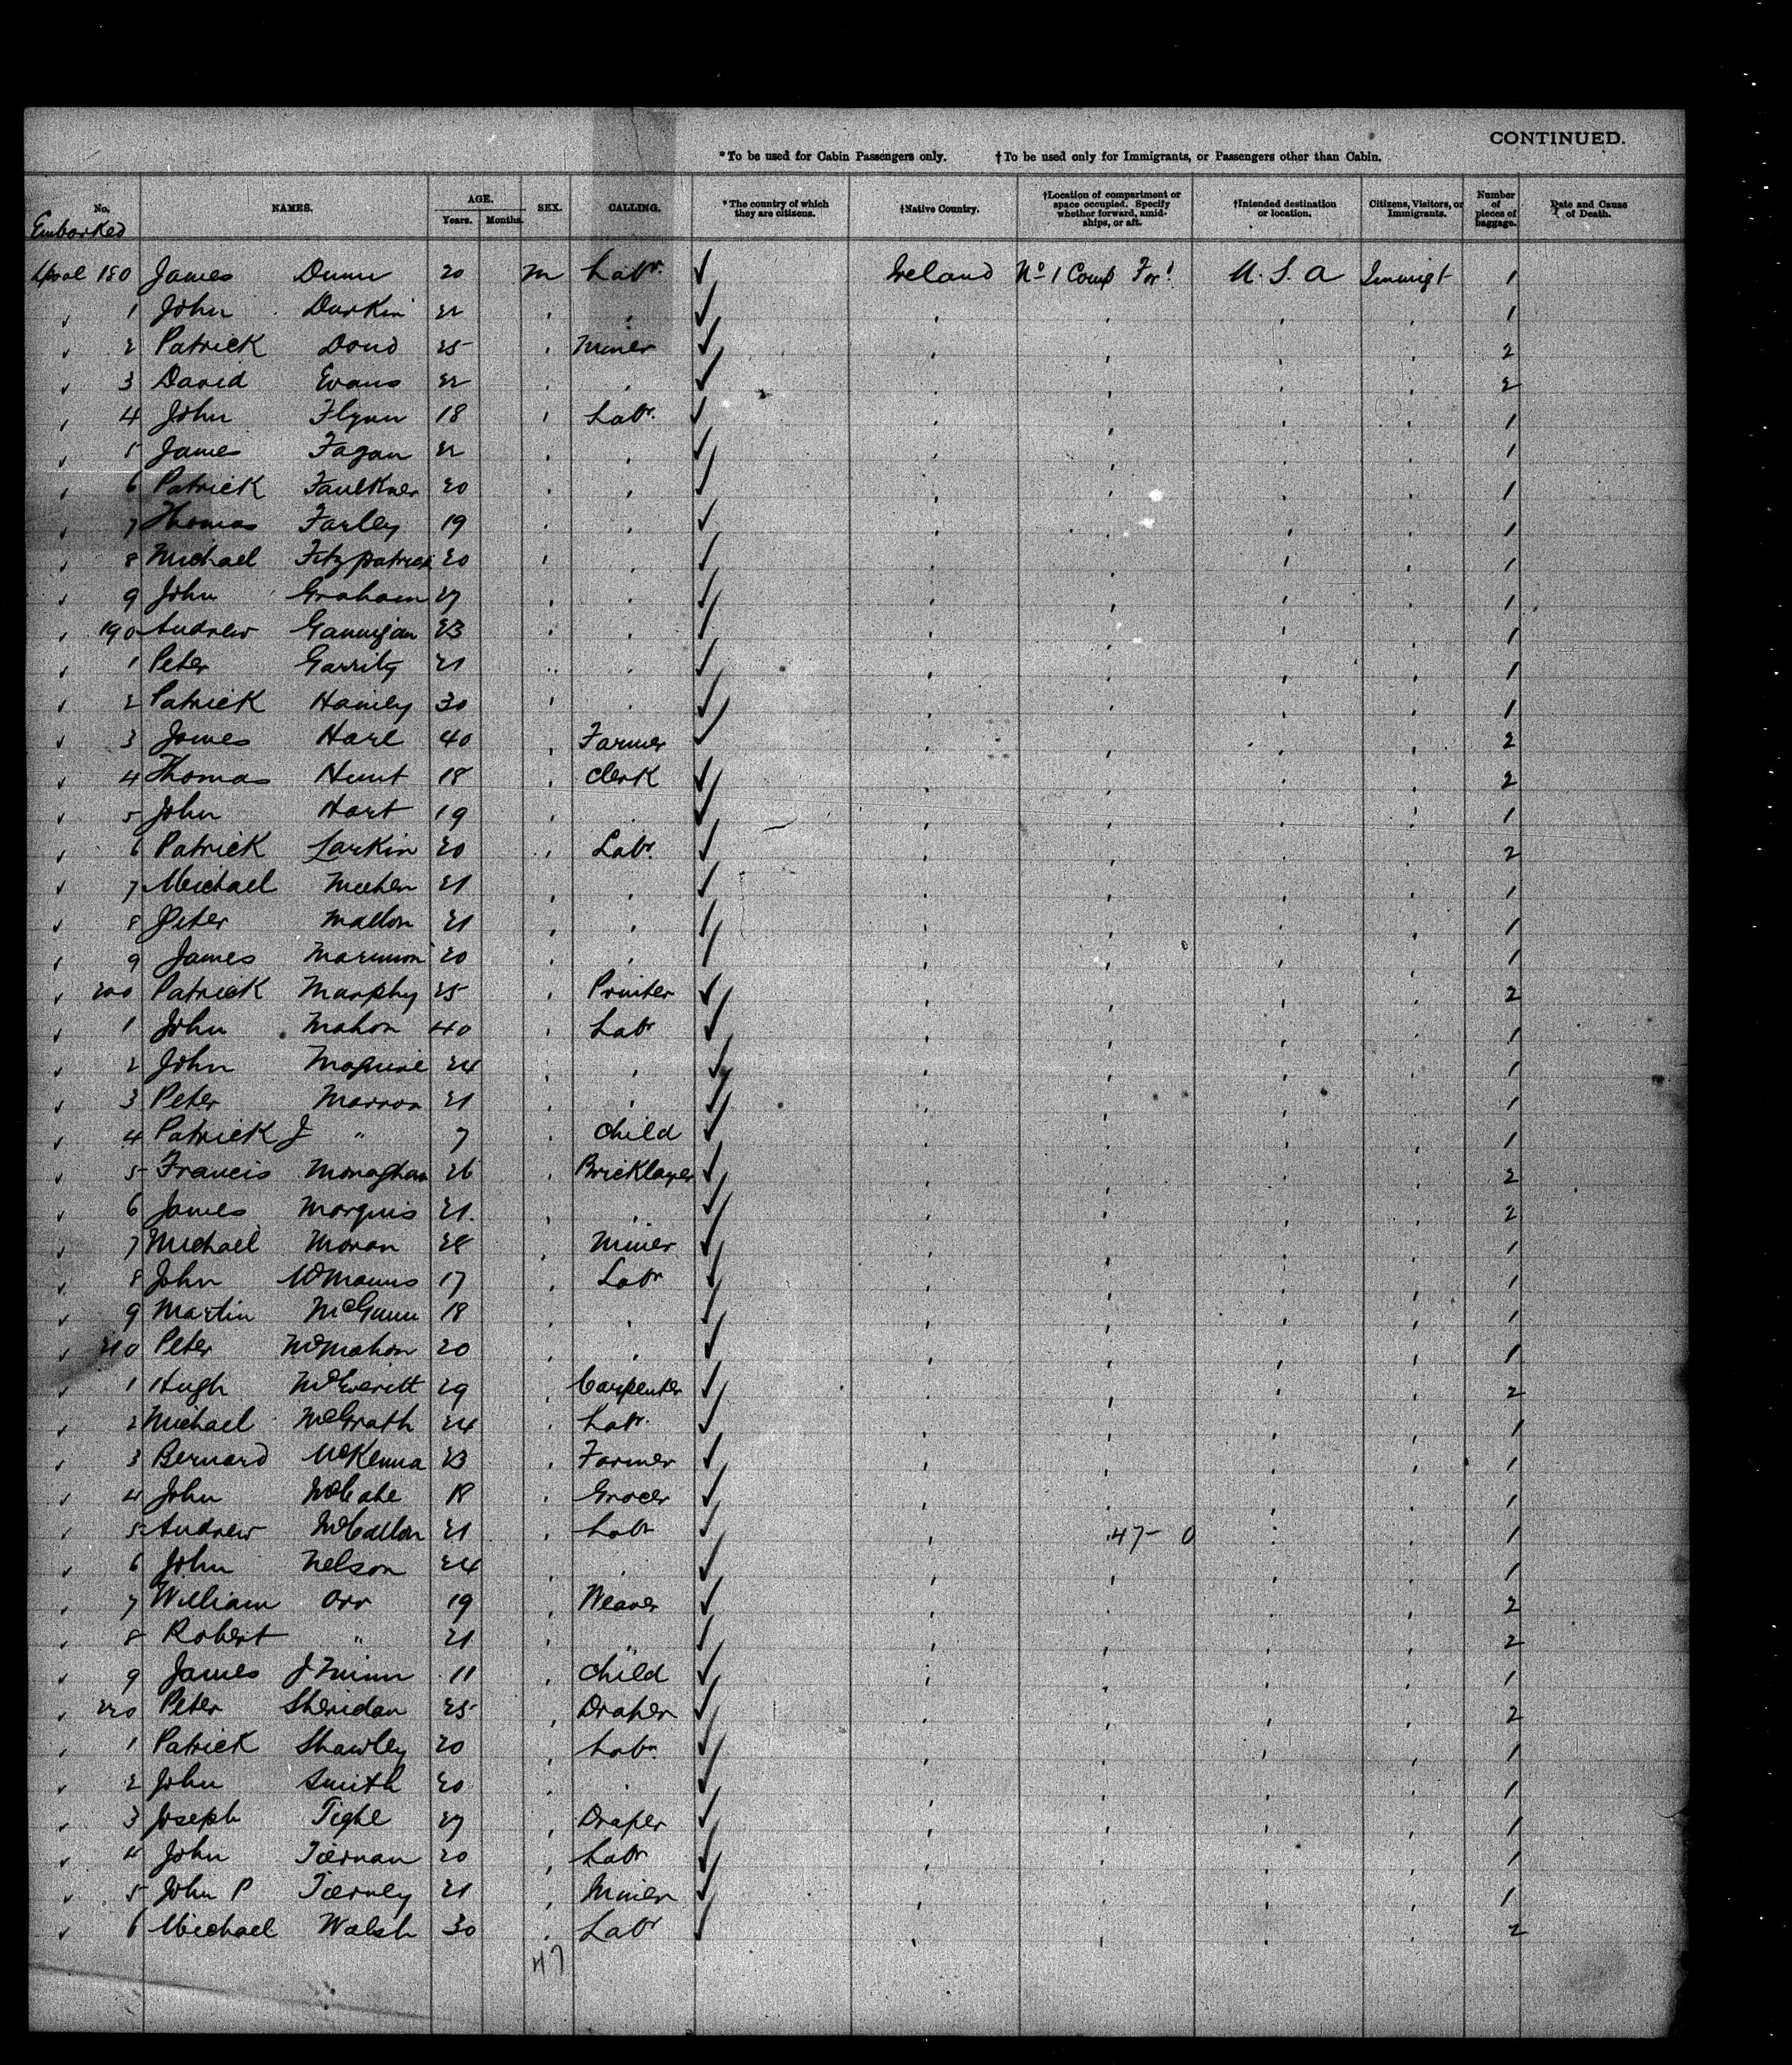 CONTINUED.
*To be used for Cabin Passengers only. †To be used only for Immigrants, or Passengers other than Cabin.
No. NAMES. AGE. Years. Months. SEX. CALLING. *The country of which they are citizens. †Native Country. †Location of compartment or space occupied. Specify whether forward, amidships, or aft. †Intended destination or location. Citizens, Visitors, or Immigrants. Number of pieces of baggage. Date and Cause of Death.
Embarked
180 James Dunn 20 m Labr. ✓ Ireland No 1 Comp For! U. S. A Immigt 1
1 John Durkin 22 " " ✓ " " " " 1
2 Patrick Doud 25 " Miner ✓ " " " " 2
3 David Evans 22 " " ✓ " " " " 2
4 John Flynn 18 " Labr. ✓ " " " " 1
5 James Fagan 22 " " ✓ " " " " 1
6 Patrick Faulkner 20 " " ✓ " " " " 1
7 Thomas Farley 19 " " ✓ " " " " 1
8 Michael Fitzpatrick 20 " " ✓ " " " " 1
9 John Graham 27 " " ✓ " " " " 1
190 Andrew Gannigan 23 " " ✓ " " " " 1
1 Peter Garrity 21 " " ✓ " " " " 1
2 Patrick Hamily 30 " " ✓ " " " " 1
3 James Hare 40 " Farmer ✓ " " " " 2
4 Thomas Hunt 18 " Clerk ✓ " " " " 2
5 John Hart 19 " " ✓ " " " " 1
6 Patrick Larkin 20 " Labr. ✓ " " " " 2
7 Michael Meehen 21 " " ✓ " " " " 1
8 Peter Mallon 21 " " ✓ " " " " 1
9 James Marmion 20 " " ✓ " " " " 1
200 Patrick Murphy 25 " Printer ✓ " " " " 2
1 John Mahon 40 " Labr ✓ " " " " 1
2 John Maguire 24 " " ✓ " " " " 1
3 Peter Marron 21 " " ✓ " " " " 1
4 Patrick J " 7 " Child ✓ " " " " 1
5 Francis Monaghan 26 " Bricklayer ✓ " " " " 2
6 James Marquis 21. " " ✓ " " " " 2
7 Michael Moran 28 " Miner ✓ " " " " 1
8 John McManus 17 " Labr ✓ " " " " 1
9 Martin McGunn 18 " " ✓ " " " " 1
210 Peter McMahon 20 " " ✓ " " " " 1
1 Hugh McEveritt 29 " Carpenter ✓ " " " " 2
2 Michael McGrath 24 " Labr. ✓ " " " " 1
3 Bernard McKenna 23 " Farmer ✓ " " " " 1
4 John McCabe 18 " Grocer ✓ " " " " 1
5 Andrew McCallon 21 " Labr ✓ " 47- 0 " " 1
6 John Nelson 24 " " ✓ " " " " 1
7 William Orr 19 " Weaver ✓ " " " " 2
8 Robert " 21 " " ✓ " " " " 2
9 James J Quinn 11 " Child ✓ " " " " 1
220 Peter Sheridan 25 " Draper ✓ " " " " 2
1 Patrick Shawley 20 " Labr. ✓ " " " " 1
2 John Smith 20 " " ✓ " " " " 1
3 Joseph Tighe 27 " Draper ✓ " " " " 1
4 John Tiernan 20 " Labr ✓ " " " " 1
5 John P Tierney 21 " Miner ✓ " " " " 1
6 Michael Walsh 30 " Labr ✓ " " " " 2
47